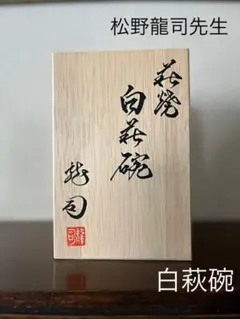 松野龍司先生
萩焼
白萩碗
龍司
龍司
白萩碗